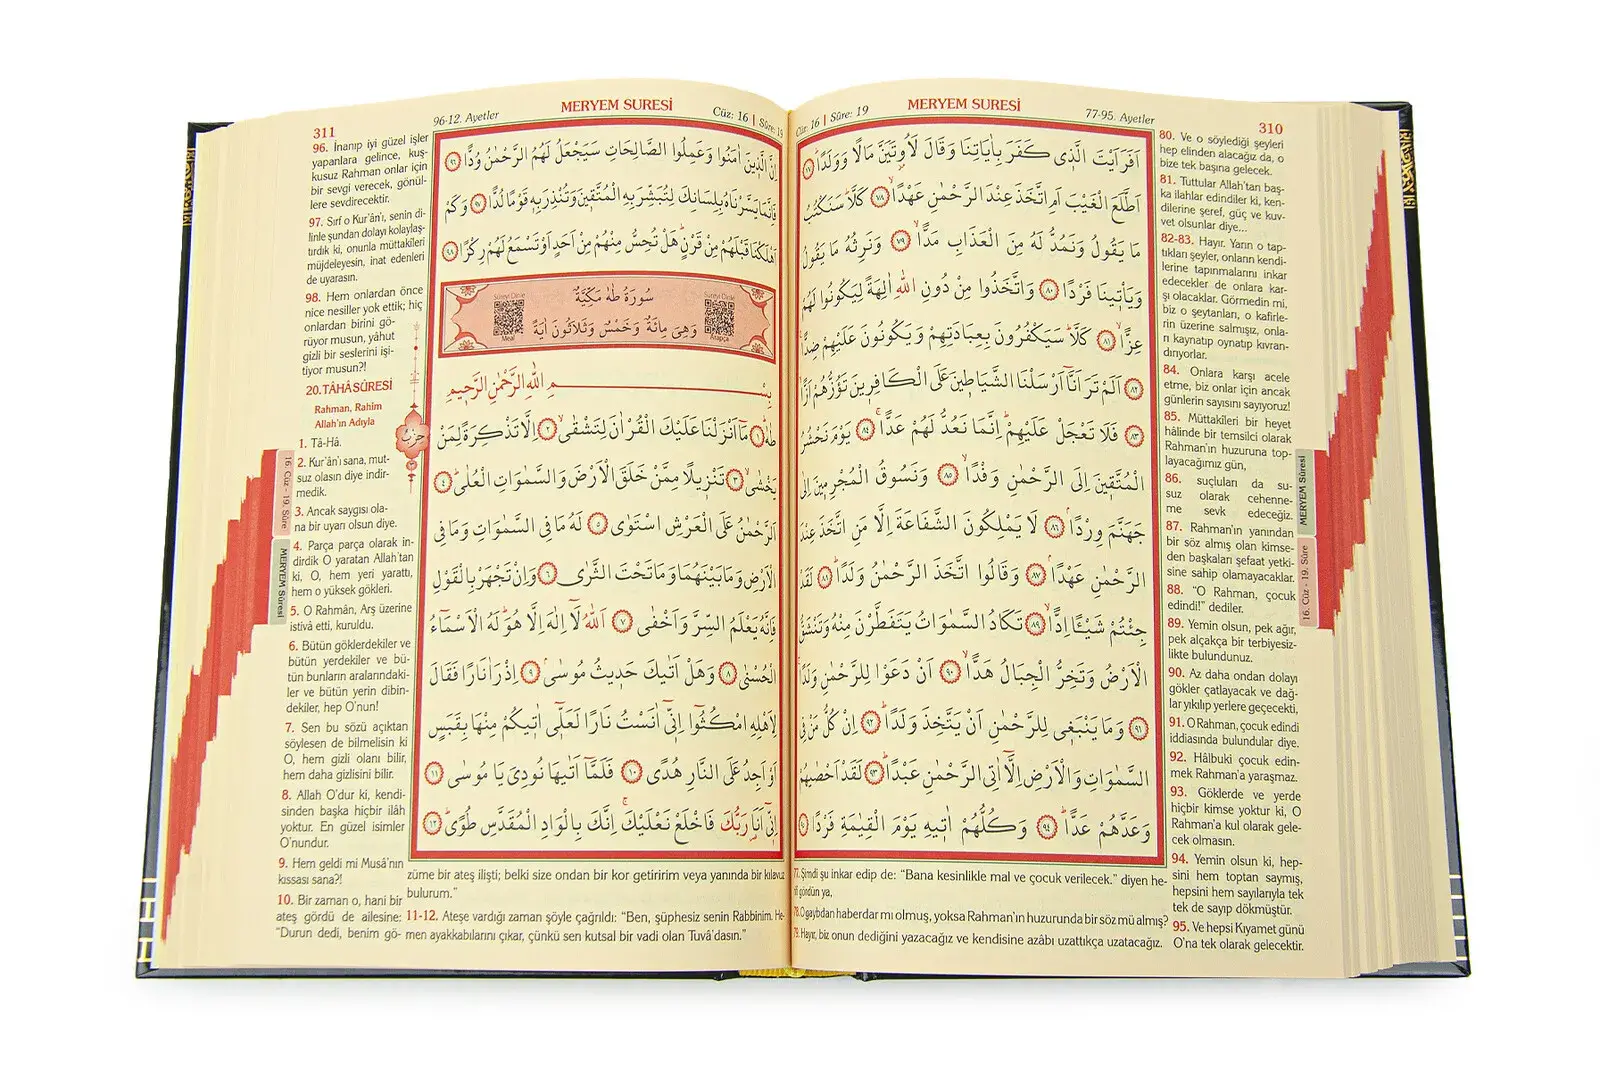 MERYEM SURESİ
Cüz: 16 | Sûre: 19
77-95. Ayetler
310
اَفَرَاَيْتَ الَّذ۪ي كَفَرَ بِاٰيَاتِنَا وَقَالَ لَاُو۫تَيَنَّ مَالًا وَوَلَدًاۜ ﴿٧٧﴾
اَطَّلَعَ الْغَيْبَ اَمِ اتَّخَذَ عِنْدَ الرَّحْمٰنِ عَهْدًاۙ ﴿٧٨﴾ كَلَّاۜ سَنَكْتُبُ
مَا يَقُولُ وَنَمُدُّ لَهُ مِنَ الْعَذَابِ مَدًّاۙ ﴿٧٩﴾ وَنَرِثُهُ مَا يَقُولُ
وَيَأْت۪ينَا فَرْدًا ﴿٨٠﴾ وَاتَّخَذُوا مِنْ دُونِ اللّٰهِ اٰلِهَةً لِيَكُونُوا لَهُمْ
عِزًّاۙ ﴿٨١﴾ كَلَّاۜ سَيَكْفُرُونَ بِعِبَادَتِهِمْ وَيَكُونُونَ عَلَيْهِمْ ضِدًّا
﴿٨٢﴾ اَلَمْ تَرَ اَنَّٓا اَرْسَلْنَا الشَّيَاط۪ينَ عَلَى الْكَافِر۪ينَ تَؤُزُّهُمْ اَزًّا
﴿٨٣﴾ فَلَا تَعْجَلْ عَلَيْهِمْۜ اِنَّمَا نَعُدُّ لَهُمْ عَدًّاۚ ﴿٨٤﴾ يَوْمَ نَحْشُرُ
الْمُتَّق۪ينَ اِلَى الرَّحْمٰنِ وَفْدًاۙ ﴿٨٥﴾ وَنَسُوقُ الْمُجْرِم۪ينَ اِلٰى
جَهَنَّمَ وِرْدًاۢ ﴿٨٦﴾ لَا يَمْلِكُونَ الشَّفَاعَةَ اِلَّا مَنِ اتَّخَذَ عِنْدَ
الرَّحْمٰنِ عَهْدًاۢ ﴿٨٧﴾ وَقَالُوا اتَّخَذَ الرَّحْمٰنُ وَلَدًاۜ ﴿٨٨﴾ لَقَدْ
جِئْتُمْ شَيْـًٔا اِدًّاۙ ﴿٨٩﴾ تَكَادُ السَّمٰوَاتُ يَتَفَطَّرْنَ مِنْهُ وَتَنْشَقُّ
الْاَرْضُ وَتَخِرُّ الْجِبَالُ هَدًّاۙ ﴿٩٠﴾ اَنْ دَعَوْا لِلرَّحْمٰنِ وَلَدًاۚ
﴿٩١﴾ وَمَا يَنْبَغ۪ي لِلرَّحْمٰنِ اَنْ يَتَّخِذَ وَلَدًاۜ ﴿٩٢﴾ اِنْ كُلُّ مَنْ فِي
السَّمٰوَاتِ وَالْاَرْضِ اِلَّٓا اٰتِي الرَّحْمٰنِ عَبْدًاۜ ﴿٩٣﴾ لَقَدْ اَحْصٰيهُمْ
وَعَدَّهُمْ عَدًّاۜ ﴿٩٤﴾ وَكُلُّهُمْ اٰت۪يهِ يَوْمَ الْقِيٰمَةِ فَرْدًا ﴿٩٥﴾
77. Şimdi şu inkar edip de: “Bana kesinlikle mal ve çocuk verilecek.” diyen he-
gördün ya,
78. O gaybdan haberdar mı olmuş, yoksa Rahman'ın huzurunda bir söz mü almış?
79. Hayır, biz onun dediğini yazacağız ve kendisine azâbı uzattıkça uzatacağız.
80. Ve o söylediği şeyleri
hep elinden alacağız da, o
bize tek başına gelecek.
81. Tuttular Allah'tan baş-
ka ilahlar edindiler ki, ken-
dilerine şeref, güç ve kuv-
vet olsunlar diye...
82-83. Hayır. Yarın o tap-
tıkları şeyler, onların kendi-
lerine tapınmalarını inkar
edecekler de onlara kar-
şı olacaklar. Görmedin mi,
biz o şeytanları, o kafirle-
rin üzerine salmışız, onla-
rı kaynatıp oynatıp kıvran-
dırıyorlar.
84. Onlara karşı acele
etme, biz onlar için ancak
günlerin sayısını sayıyoruz!
85. Müttakîleri bir heyet
hâlinde bir temsilci olarak
Rahman'ın huzuruna top-
layacağımız gün,
86. suçluları da su-
suz olarak cehenne-
me sevk edeceğiz.
87. Rahman'ın yanından
bir söz almış olan kimse-
den başkaları şefaat yetki-
sine sahip olamayacaklar.
88. “O Rahman, çocuk
edindi!” dediler.
89. Yemin olsun, pek ağır,
pek alçakça bir terbiyesiz-
likte bulundunuz.
90. Az daha ondan dolayı
gökler çatlayacak ve dağ-
lar yıkılıp yerlere geçecekti,
91. O Rahman, çocuk edindi
iddiasında bulundular diye.
92. Hâlbuki çocuk edin-
mek Rahman'a yaraşmaz.
93. Göklerde ve yerde
hiçbir kimse yoktur ki, O
Rahman'a kul olarak gele-
cek olmasın.
94. Yemin olsun ki, hep-
sini hem toptan saymış,
hepsini hem sayılarıyla tek
tek de sayıp dökmüştür.
95. Ve hepsi Kıyamet günü
O'na tek olarak gelecektir.
MERYEM Sûresi
16. Cüz - 19. Sûre
311
96-12. Ayetler
MERYEM SURESİ
Cüz: 16 | Sûre: 19
اِنَّ الَّذ۪ينَ اٰمَنُوا وَعَمِلُوا الصَّالِحَاتِ سَيَجْعَلُ لَهُمُ الرَّحْمٰنُ وُدًّا ﴿٩٦﴾
فَاِنَّمَا يَسَّرْنَاهُ بِلِسَانِكَ لِتُبَشِّرَ بِهِ الْمُتَّق۪ينَ وَتُنْذِرَ بِه۪ قَوْمًا لُدًّا ﴿٩٧﴾ وَكَمْ
اَهْلَكْنَا قَبْلَهُمْ مِنْ قَرْنٍۜ هَلْ تُحِسُّ مِنْهُمْ مِنْ اَحَدٍ اَوْ تَسْمَعُ لَهُمْ رِكْزًا ﴿٩٨﴾
سُورَةُ طٰهٰ مَكِّيَّةٌ
وَهِيَ مِائَةٌ وَخَمْسٌ وَثَلَاثُونَ اٰيَةً
Sureyi Dinle
Meal
Sureyi Dinle
Arapça
بِسْمِ اللّٰهِ الرَّحْمٰنِ الرَّح۪يمِ
طٰهٰۜ ﴿١﴾ مَٓا اَنْزَلْنَا عَلَيْكَ الْقُرْاٰنَ لِتَشْقٰىۙ ﴿٢﴾ اِلَّا تَذْكِرَةً لِمَنْ
يَخْشٰىۙ ﴿٣﴾ تَنْز۪يلًا مِمَّنْ خَلَقَ الْاَرْضَ وَالسَّمٰوَاتِ الْعُلٰىۜ ﴿٤﴾
اَلرَّحْمٰنُ عَلَى الْعَرْشِ اسْتَوٰى ﴿٥﴾ لَهُ مَا فِي السَّمٰوَاتِ وَمَا فِي
الْاَرْضِ وَمَا بَيْنَهُمَا وَمَا تَحْتَ الثَّرٰى ﴿٦﴾ وَاِنْ تَجْهَرْ بِالْقَوْلِ
فَاِنَّهُ يَعْلَمُ السِّرَّ وَاَخْفٰى ﴿٧﴾ اَللّٰهُ لَٓا اِلٰهَ اِلَّا هُوَۜ لَهُ الْاَسْمَٓاءُ
الْحُسْنٰى ﴿٨﴾ وَهَلْ اَتٰيكَ حَد۪يثُ مُوسٰىۢ ﴿٩﴾ اِذْ رَاٰ نَارًا فَقَالَ
لِاَهْلِهِ امْكُثُٓوا اِنّ۪ٓي اٰنَسْتُ نَارًا لَعَلّ۪ٓي اٰت۪يكُمْ مِنْهَا بِقَبَسٍ
اَوْ اَجِدُ عَلَى النَّارِ هُدًى ﴿١٠﴾ فَلَمَّٓا اَتٰيهَا نُودِيَ يَا مُوسٰى ﴿١١﴾
اِنّ۪ٓي اَنَا۬ رَبُّكَ فَاخْلَعْ نَعْلَيْكَۚ اِنَّكَ بِالْوَادِ الْمُقَدَّسِ طُوًىۜ ﴿١٢﴾
حزب
96. İnanıp iyi güzel işler
yapanlara gelince, kuş-
kusuz Rahman onlar için
bir sevgi verecek, gönül-
lere sevdirecektir.
97. Sırf o Kur'ân'ı, senin di-
linle şundan dolayı kolaylaş-
tırdık ki, onunla müttakîleri
müjdeleyesin, inat edenleri
de uyarasın.
98. Hem onlardan önce
nice nesiller yok ettik; hiç
onlardan birini gö-
rüyor musun, yâhut
gizli bir seslerini işi-
tiyor musun?!
20. TÂHÂ SÛRESİ
Rahman, Rahim
Allah'ın Adıyla
1. Tâ-Hâ.
2. Kur'ân'ı sana, mut-
suz olasın diye indir-
medik.
3. Ancak saygısı ola-
na bir uyarı olsun diye.
4. Parça parça olarak in-
dirdik O yaratan Allah'tan
ki. O, hem yeri yarattı,
hem o yüksek gökleri.
5. O Rahmân, Arş üzerine
istivâ etti, kuruldu.
6. Bütün göklerdekiler ve
bütün yerdekiler ve bü-
tün bunların aralarındaki-
ler ve bütün yerin dibin-
dekiler, hep O'nun!
7. Sen bu sözü açıktan
söylesen de bilmelisin ki
O, hem gizli olanı bilir,
hem daha gizlisini bilir.
8. Allah O'dur ki, kendi-
sinden başka hiçbir ilâh
yoktur. En güzel isimler
O'nundur.
9. Hem geldi mi Musâ'nın
kıssası sana?!
10. Bir zaman o, hani bir
ateş gördü de ailesine:
“Durun dedi, benim gö-
züme bir ateş ilişti; belki size ondan bir kor getiririm veya yanında bir kılavuz
bulurum.”
11-12. Ateşe vardığı zaman şöyle çağrıldı: “Ben, şüphesiz senin Rabbinim. He-
men ayakkabılarını çıkar, çünkü sen kutsal bir vadi olan Tuvâ'dasın.”
16. Cüz - 19. Sûre
MERYEM Sûresi